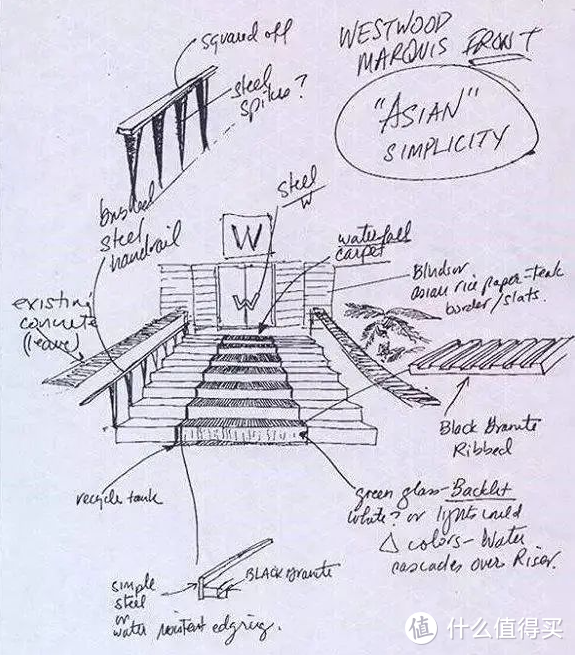 WESTWOOD
MARQUIS FRONT
"ASIAN"
SIMPLICITY
squared off
steel
spikes?
brushed
steel
handrail
steel
W
W
W
waterfall
carpet
existing
concrete
(leave)
asian rice paper-teak
border/slats.
Black Granite
Ribbed
recycle tank
green glass-Backlit
white? or lights could
Δ colors-Water
cascades over Riser.
BLACK Granite
simple
steel
or
water resistent edging.
值 什么值得买